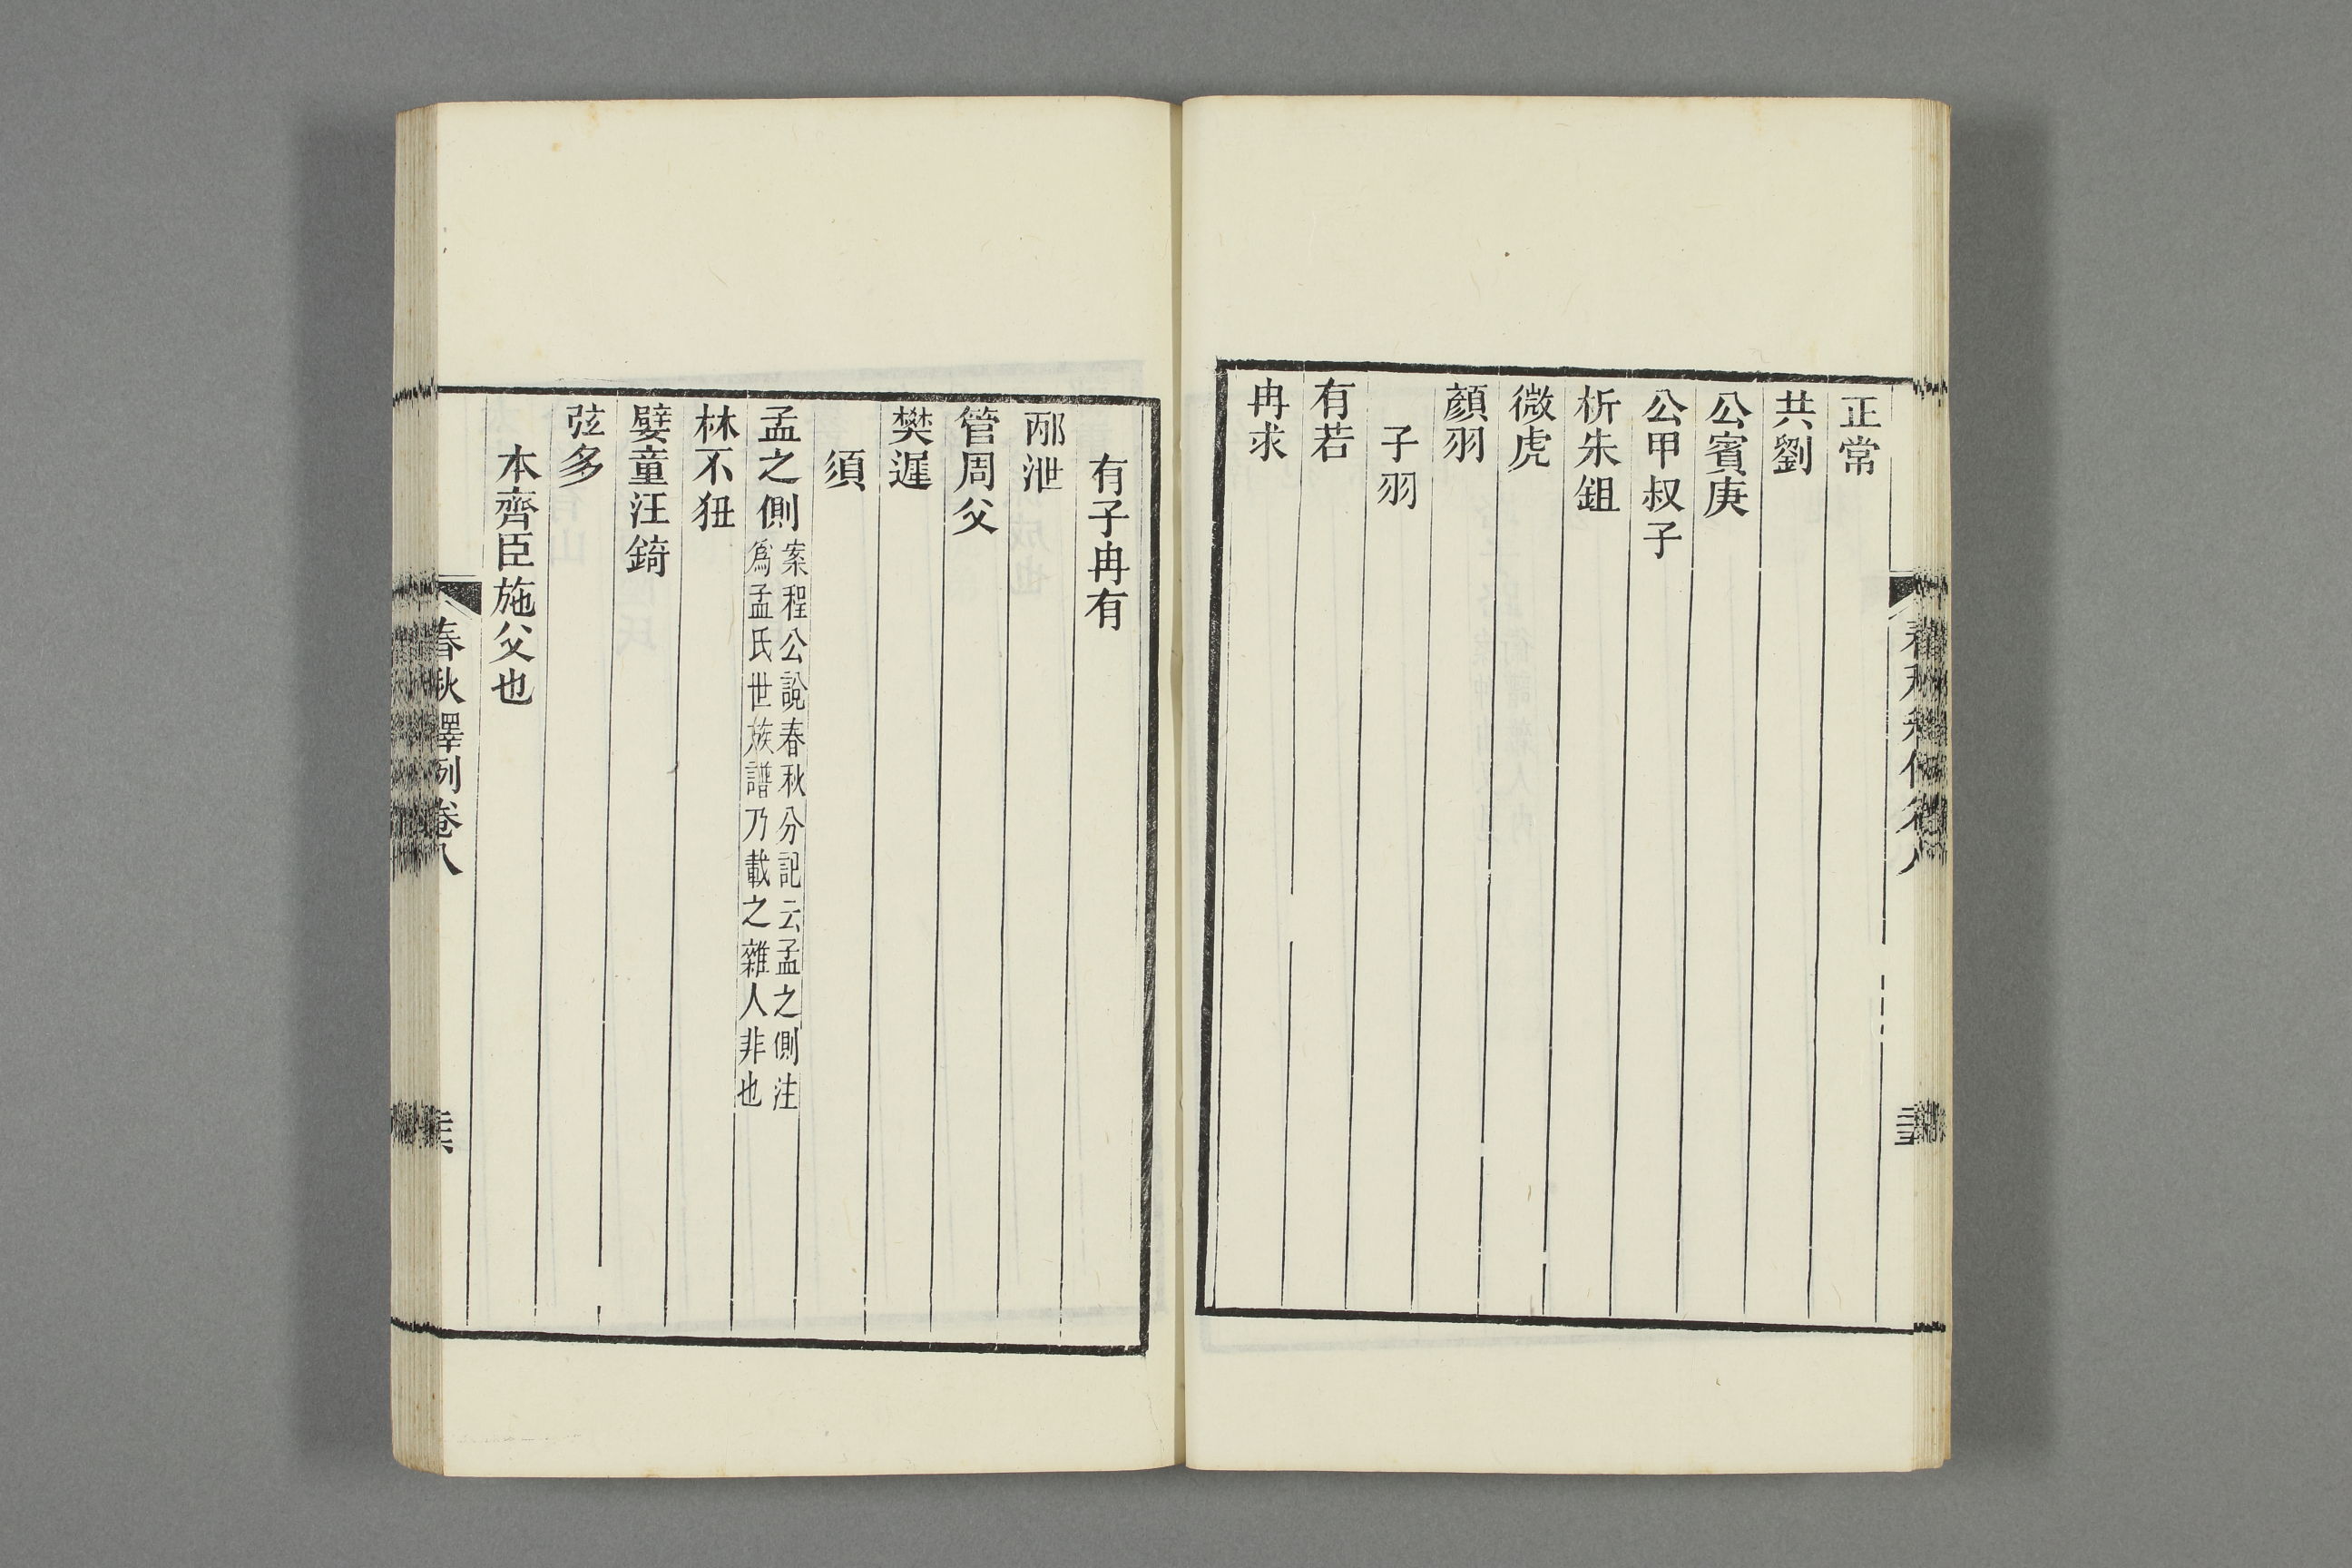 正常
共劉
公賓庚
公甲叔子
析朱鉏
微虎
顏羽
子羽
有若
冉求
有子冉有
邴泄
管周父
樊遲
須
孟之側案程公說春秋分記云孟之側注
爲孟氏世族譜乃載之雜人非也
林不狃
嬖童汪錡
弦多
本齊臣施父也
春秋釋例卷八